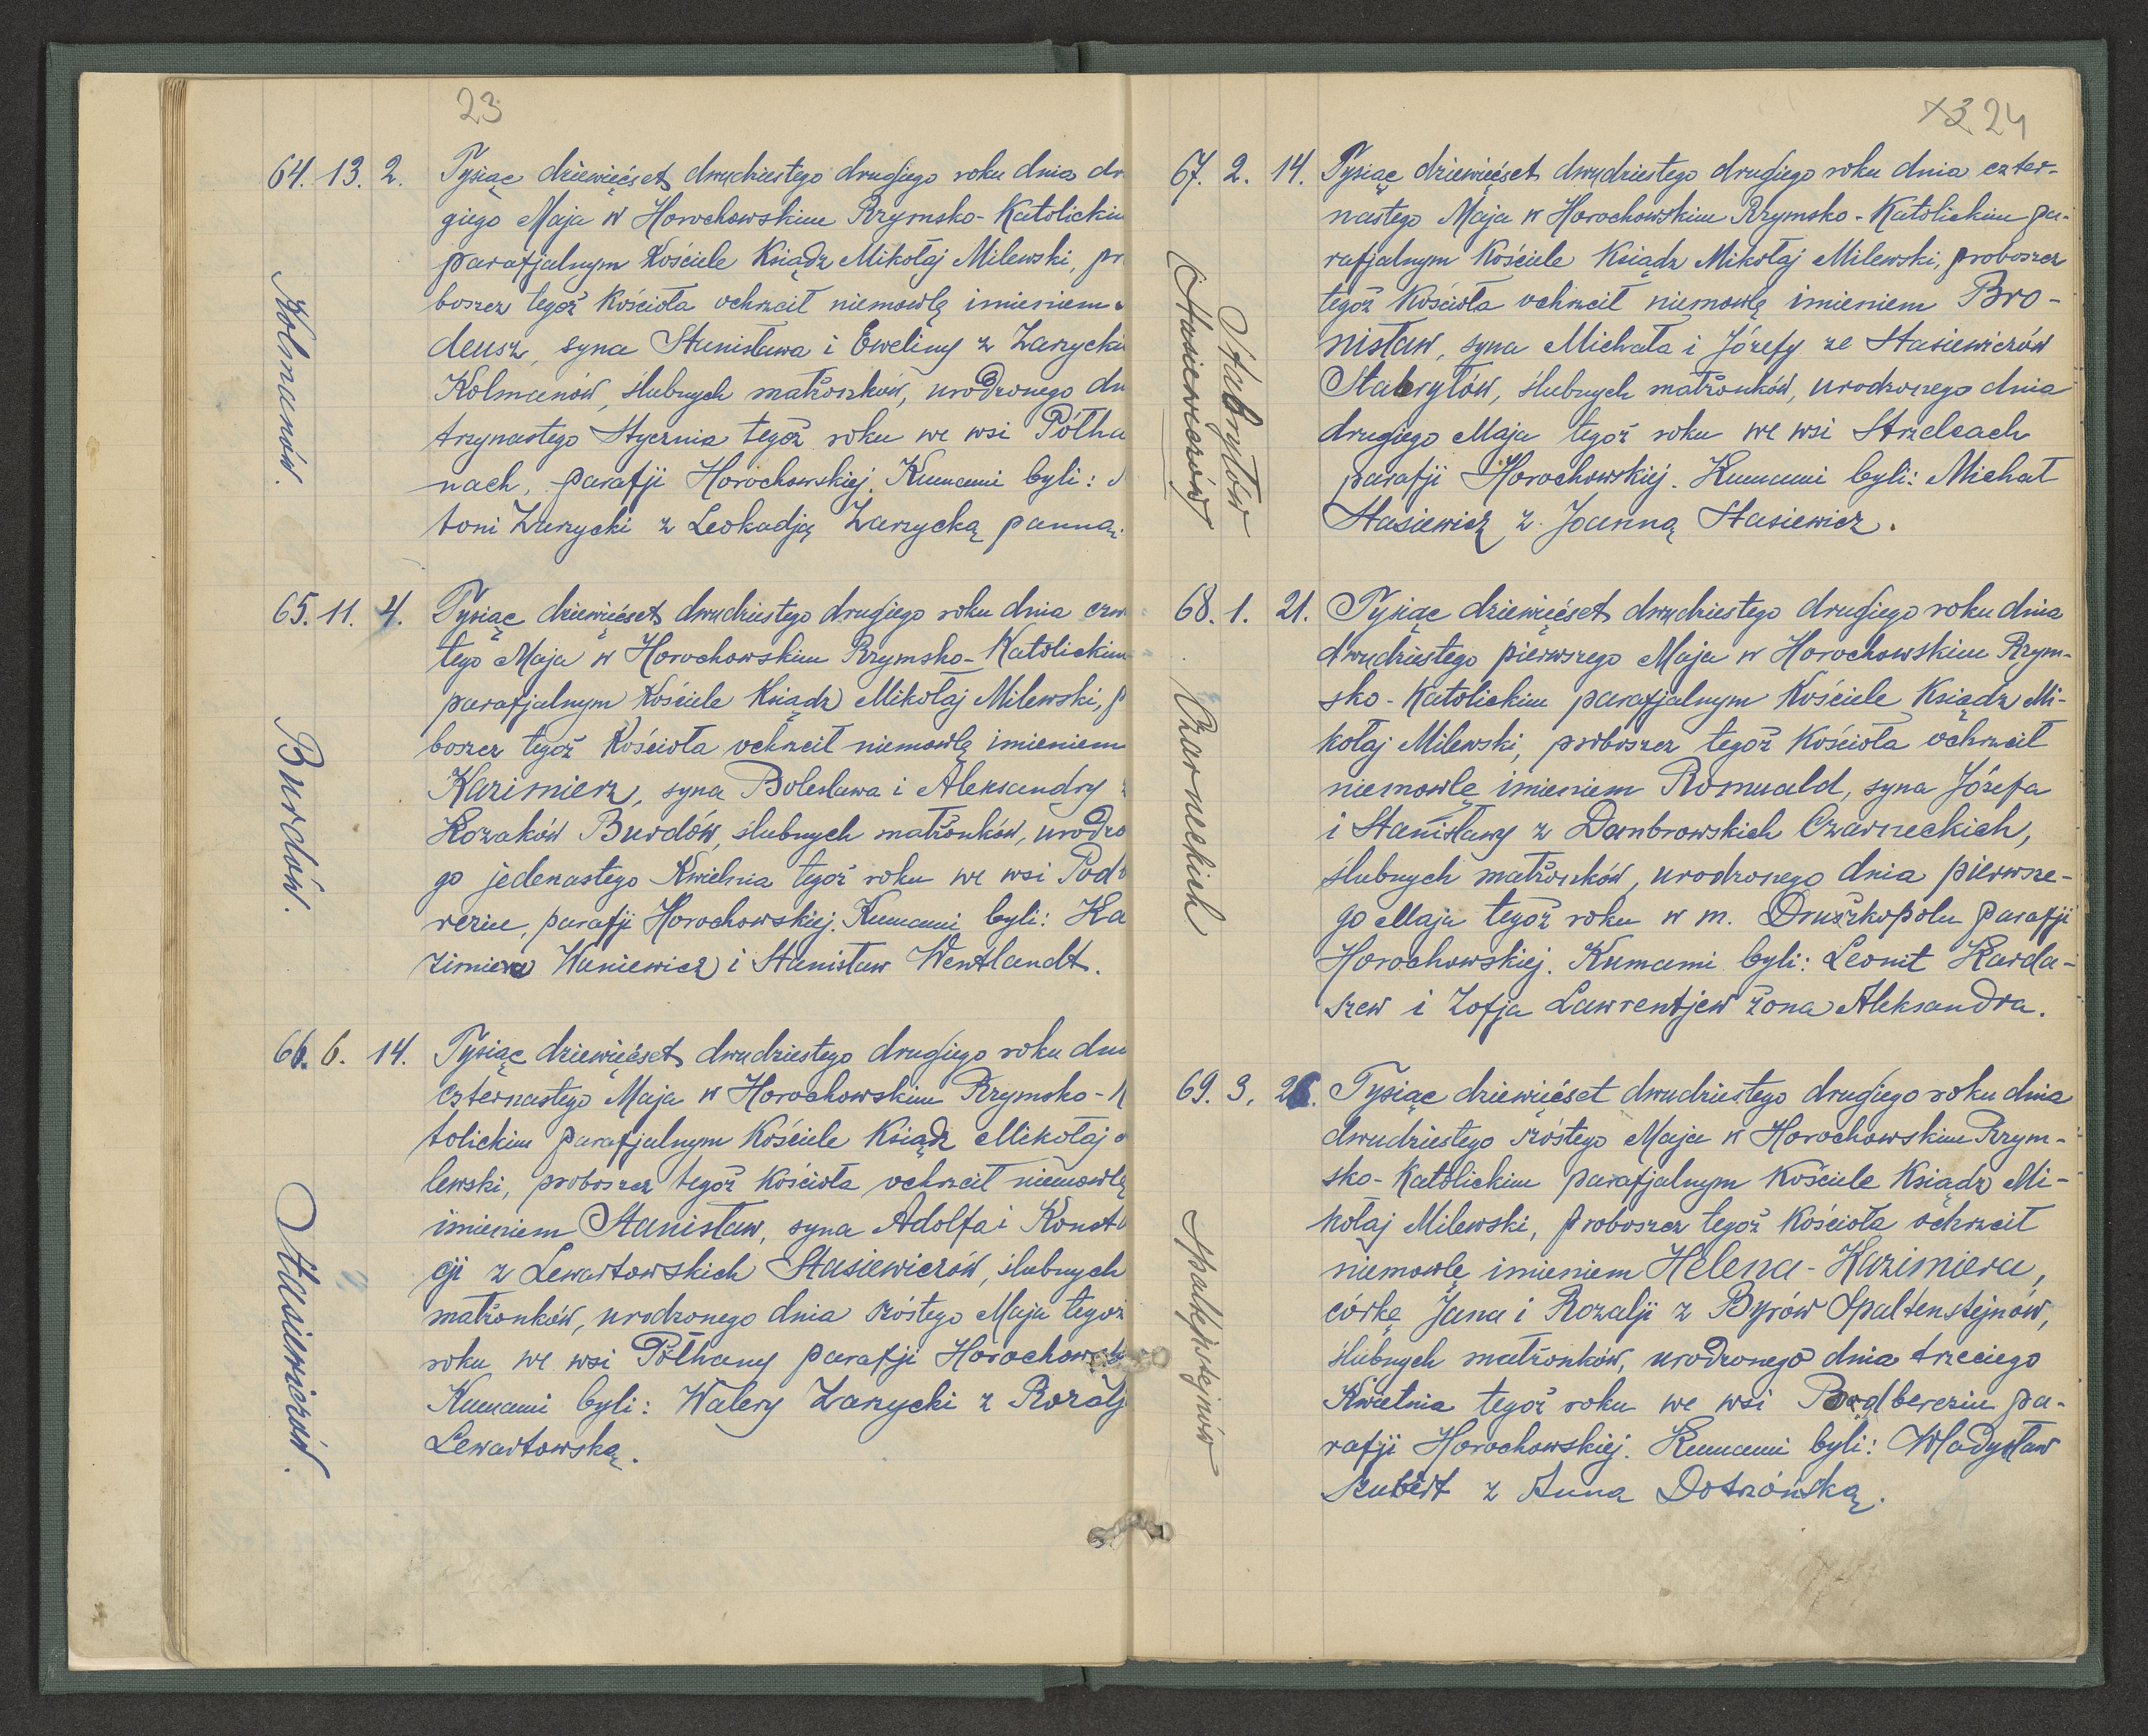 23
64. 13. 2. Tysiąc dziewięćset dwudziestego drugiego roku dnia dr
giego Maja w Horochowskim Rzymsko-Katolickim
parafjalnym Kościele Ksiądz Mikołaj Milewski, pr
boszcz tegoż Kościoła ochrzcił niemowlę imieniem
deusz, syna Stanisława i Eweliny z Zarzycki
Kolmanów, ślubnych małżonków, urodzonego dn
trzynastego Stycznia tegoż roku we wsi Półha
nach, parafji Horochowskiej. Kumami byli:
toni Zarzycki z Leokadją Zarzycką panną.
Kolmanów.
65. 11. 4. Tysiąc dziewięćset dwudziestego drugiego roku dnia czw
tego Maja w Horochowskim Rzymsko-Katolickim
parafjalnym Kościele Ksiądz Mikołaj Milewski, p
boszcz tegoż Kościoła ochrzcił niemowlę imieniem
Kazimierz, syna Bolesława i Aleksandry z
Kozaków Burdów, ślubnych małżonków, urodzo
go jedenastego Kwietnia tegoż roku we wsi Podb
reziu, parafji Horochowskiej. Kumami byli: Ka
zimierz Waniewicz i Stanisław Wentlandt.
Burdów.
66. 6. 14. Tysiąc dziewięćset dwudziestego drugiego roku dni
czternastego Maja w Horochowskim Rzymsko-K
tolickim parafjalnym Kościele Ksiądz Mikołaj
lewski, proboszcz tegoż Kościoła ochrzcił niemowlę
imieniem Stanisław, syna Adolfa i Konst
cji z Lewartowskich Stasiewiczów, ślubnych
małżonków, urodzonego dnia szóstego Maja tegoż
roku we wsi Półhany parafji Horochowsk
Kumami byli: Walery Zarzycki z Rozalj
Lewartowską.
Stasiewiczów.
x3 24
67. 2. 14. Tysiąc dziewięćset dwudziestego drugiego roku dnia czter-
nastego Maja w Horochowskim Rzymsko-Katolickim pa-
rafjalnym Kościele Ksiądz Mikołaj Milewski, proboszcz
tegoż Kościoła ochrzcił niemowlę imieniem Bro-
nisław, syna Michała i Józefy ze Stasiewiczów
Stabrytów, ślubnych małżonków, urodzonego dnia
drugiego Maja tegoż roku we wsi Strzelcach
parafji Horochowskiej. Kumami byli: Michał
Stasiewicz z Joanną Stasiewicz.
Stabrytów
(Stasiewiczów)
68. 1. 21. Tysiąc dziewięćset dwudziestego drugiego roku dnia
dwudziestego pierwszego Maja w Horochowskim Rzym-
sko-Katolickim parafjalnym Kościele Ksiądz Mi-
kołaj Milewski, proboszcz tegoż Kościoła ochrzcił
niemowlę imieniem Romuald, syna Józefa
i Stanisławy z Dambrowskich Czarneckich,
ślubnych małżonków, urodzonego dnia pierwsze-
go Maja tegoż roku w m. Drużkopolu parafji
Horochowskiej. Kumami byli: Leonit Karda-
szew i Zofja Lawrentjew żona Aleksandra.
Czarneckich
69. 3. 26. Tysiąc dziewięćset dwudziestego drugiego roku dnia
dwudziestego szóstego Maja w Horochowskim Rzym-
sko-Katolickim parafjalnym Kościele Ksiądz Mi-
kołaj Milewski, proboszcz tegoż Kościoła ochrzcił
niemowlę imieniem Helena-Kazimiera,
córkę Jana i Rozalji z Byrów Spaltenstejnów,
ślubnych małżonków, urodzonego dnia trzeciego
Kwietnia tegoż roku we wsi Podbereziu pa-
rafji Horochowskiej. Kumami byli: Władysław
Szubert z Anna Dotzońską.
Spaltejnstejnów